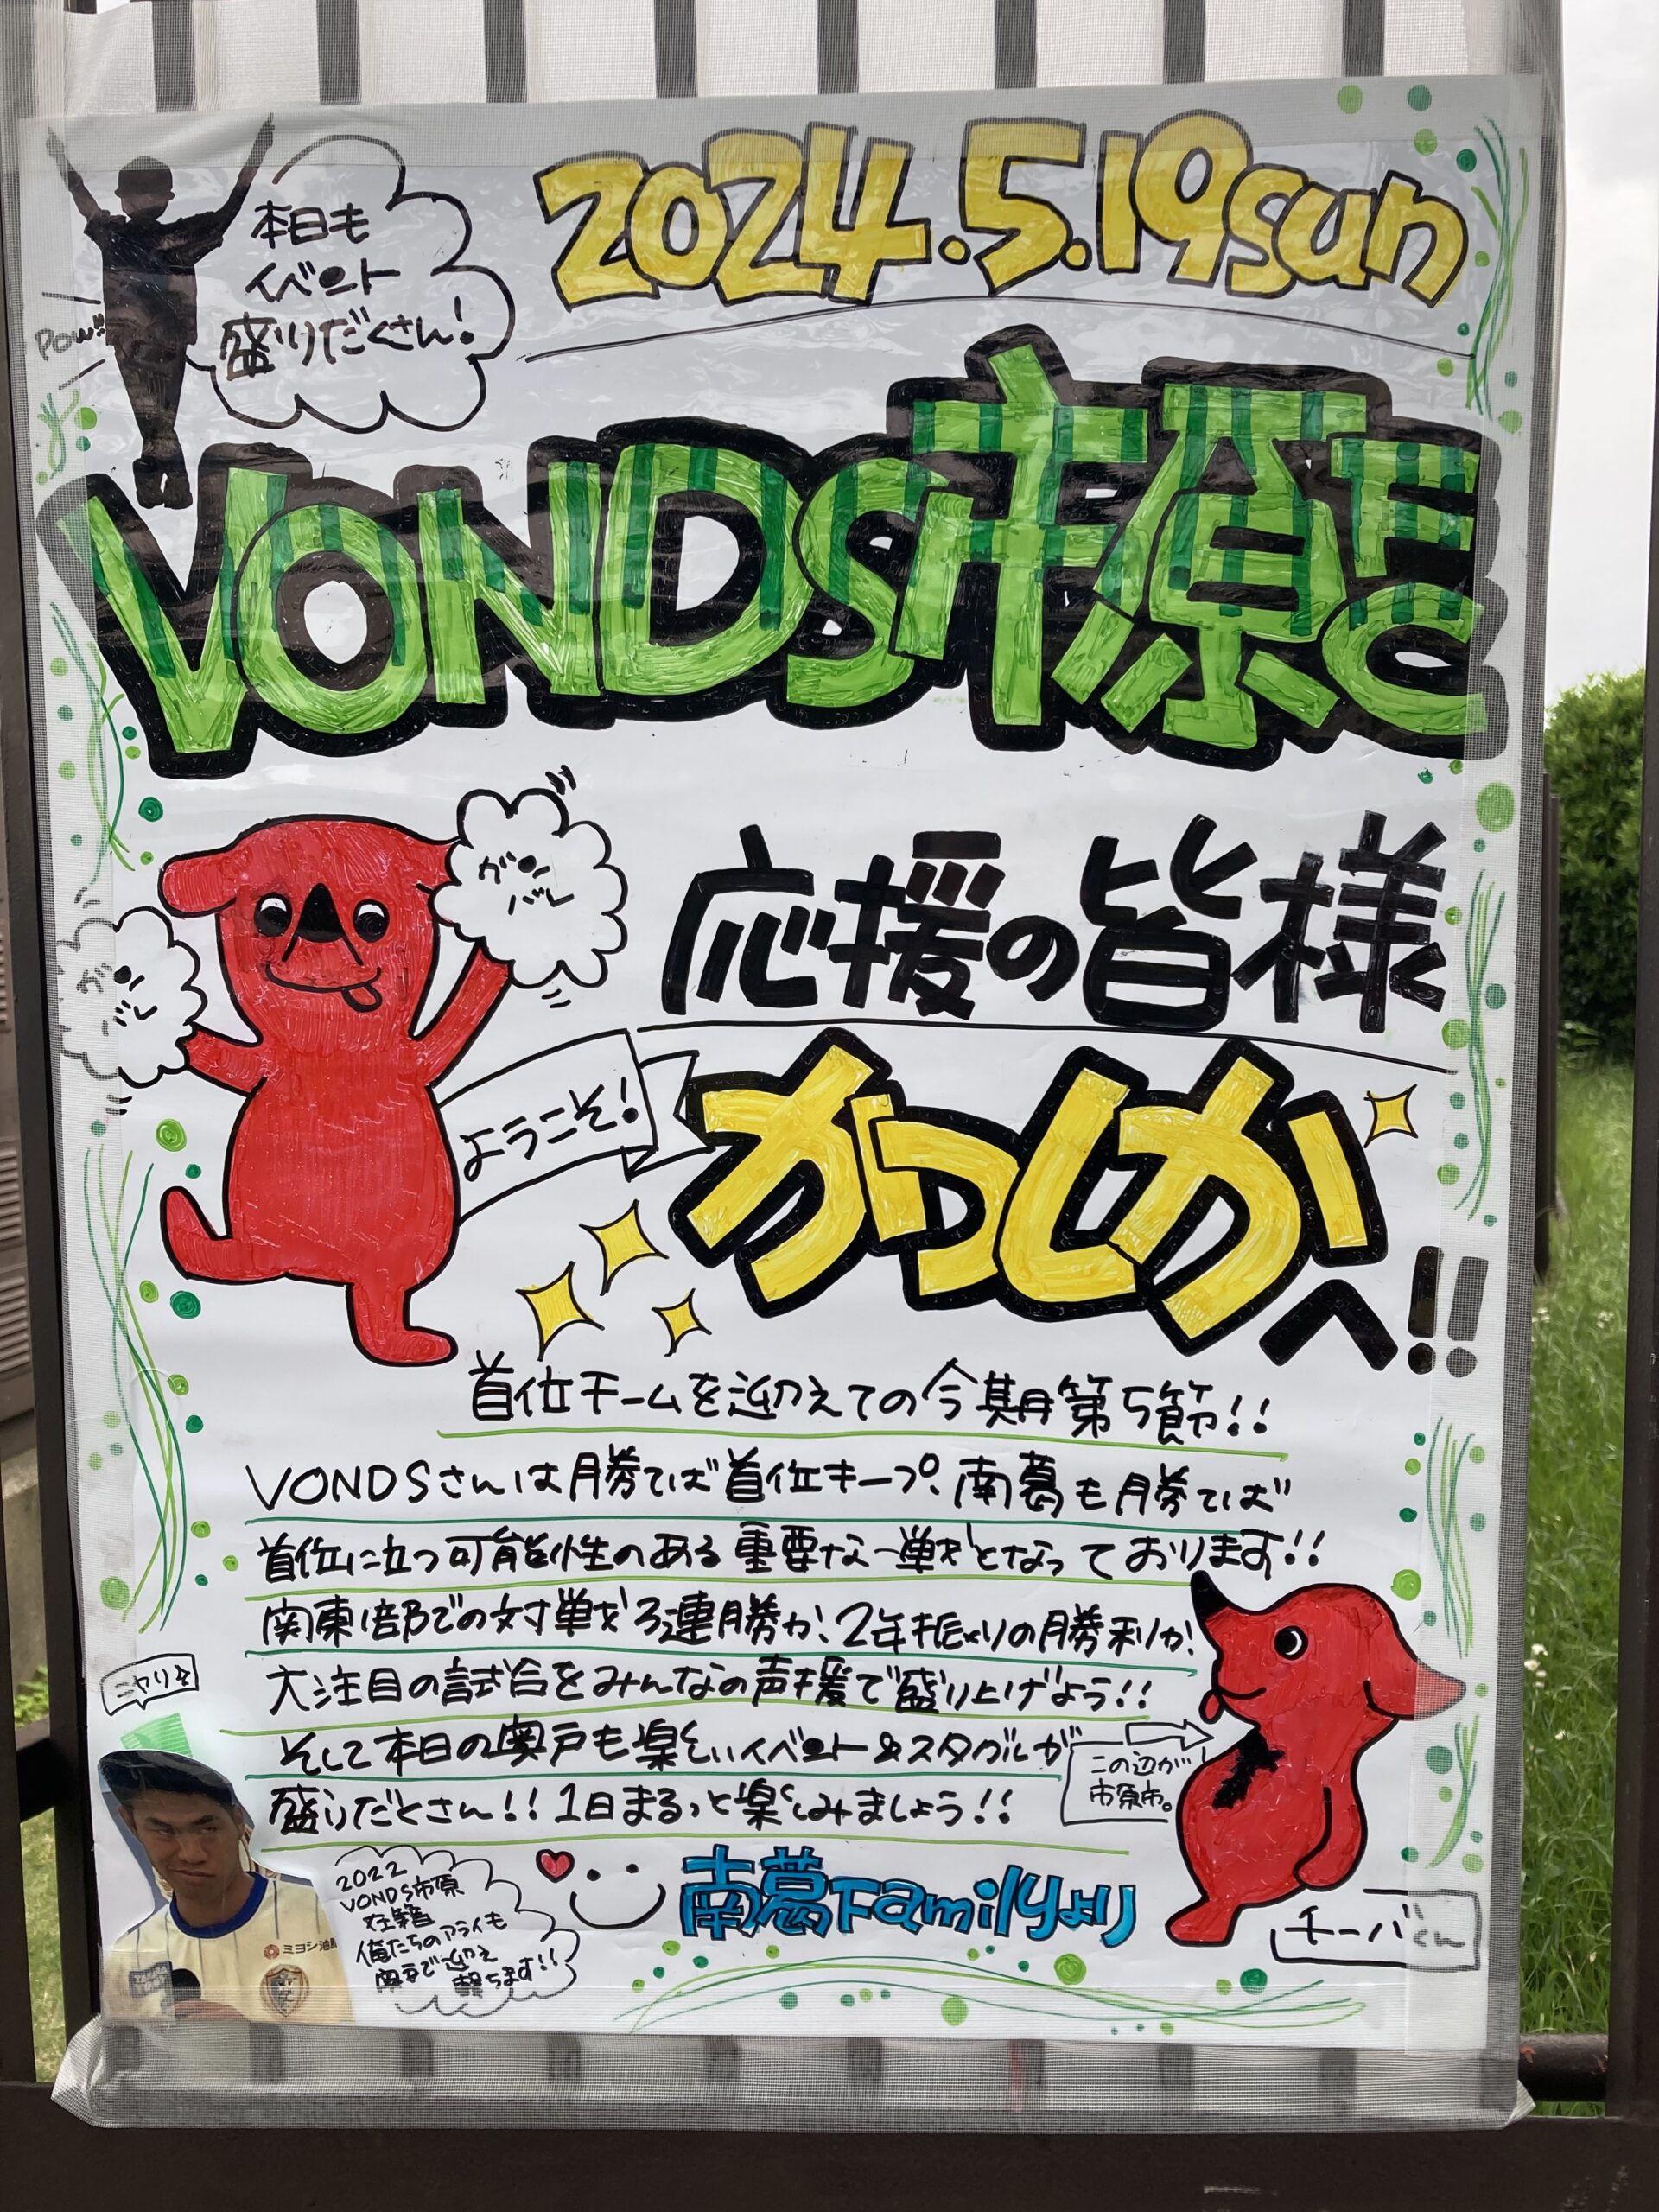 2024.5.19sun
本日も
イベント
盛りだくさん!
Pow!!
VONDS市原を
応援の皆様
ガンバレ
ガンバレ
ようこそ!
かつしかへ!!
首位チームを迎えての今期第5節!!
VONDSさんは勝てば首位キープ、南葛も勝てば
首位に立つ可能性のある重要な一戦となっております!!
関東1部での対戦が3連勝か、2年振りの勝利か!
大注目の試合をみんなの声援で盛り上げよう!!
そして本日の奥戸も楽しいイベント&スタグルが
盛りだくさん!!1日まるっと楽しみましょう!!
ニヤリ
この辺が
市原市。
2022
VONDS市原
在籍
俺たちのアライも
奥戸で迎え
撃ちます!!
ミヨシ油脂
南葛Familyより
チーバくん